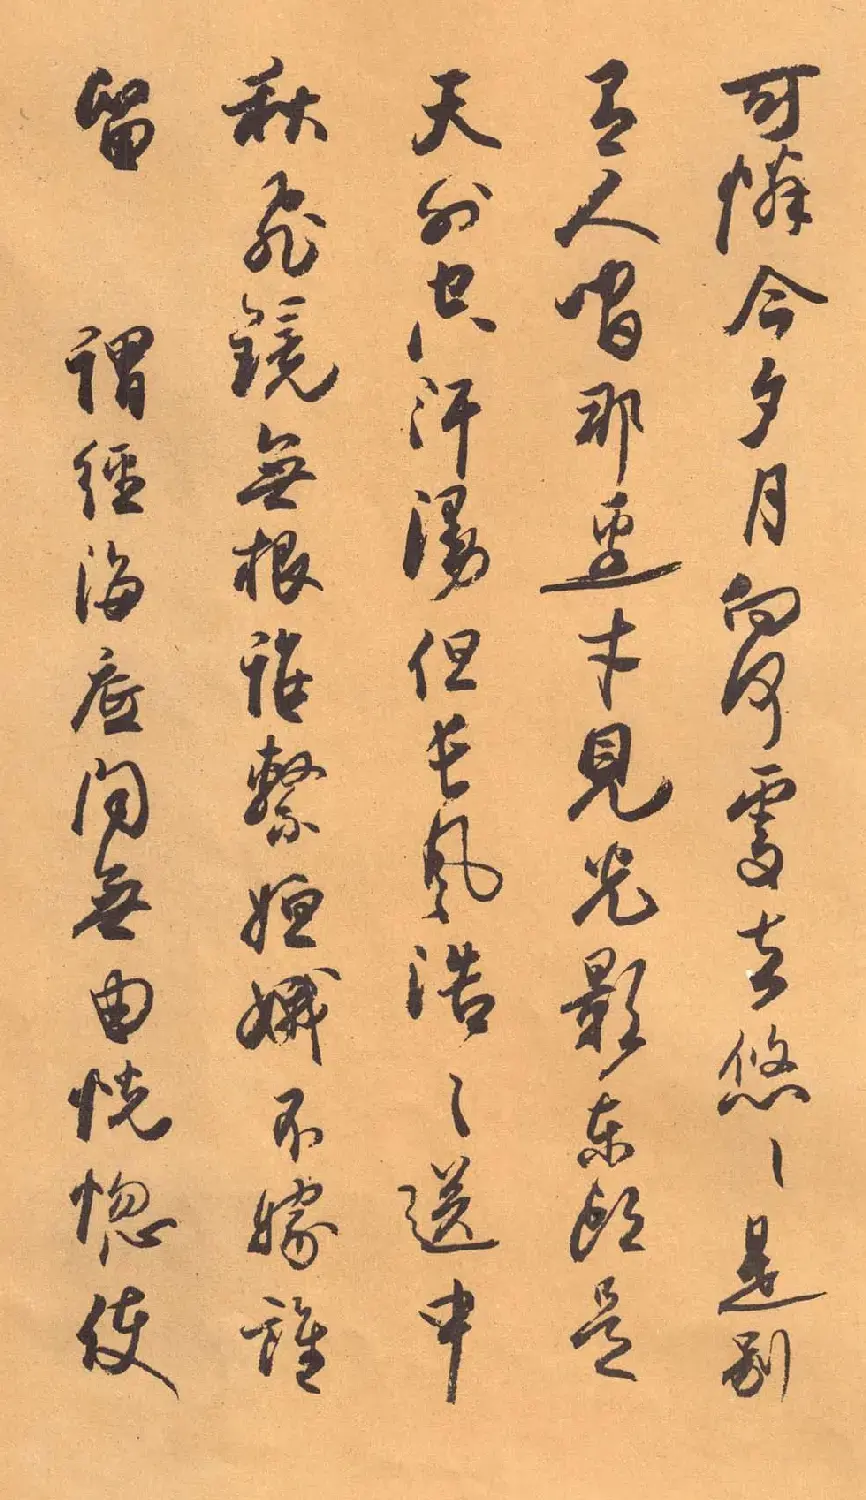 可憐今夕月向何處去悠〻是別
有人間那邊才見光影東頭是
天外空汗漫但長風浩〻送中
秋飛鏡無根誰繫姮娥不嫁誰
留 謂經海底問無由恍惚使